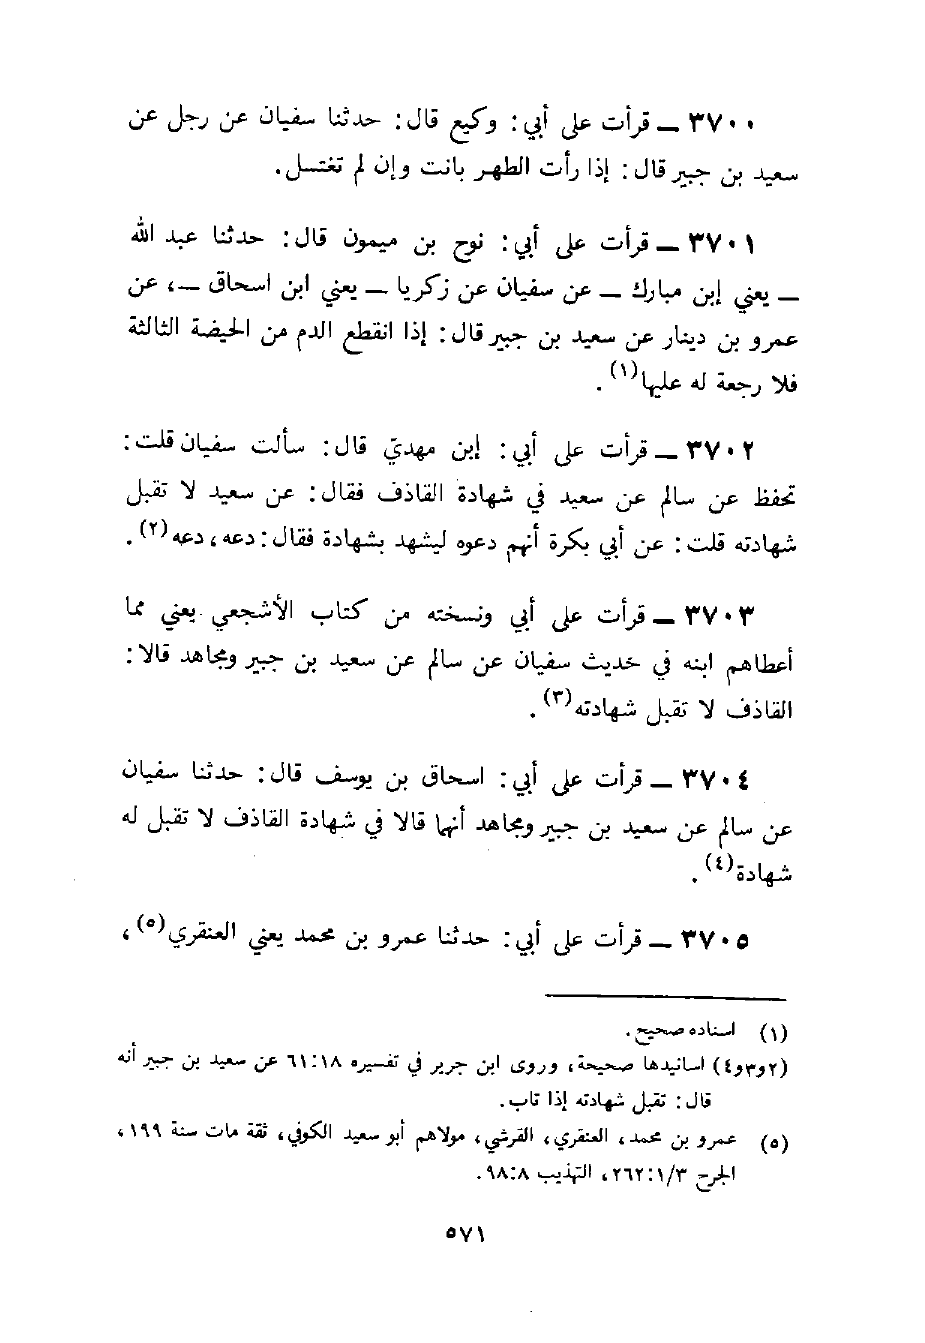 ٣٧٠٠ ــ قرأت على أبي: وكيع قال: حدثنا سفيان عن رجل عن
سعيد بن جبير قال: إذا رأت الطهر بانت وإن لم تغتسل.
٣٧٠١ ــ قرأت على أبي: نوح بن ميمون قال: حدثنا عبد الله
ــ يعني إبن مبارك ــ عن سفيان عن زكريا ــ يعني ابن اسحاق ــ، عن
عمرو بن دينار عن سعيد بن جبير قال: إذا انقطع الدم من الحيضة الثالثة
فلا رجعة له عليها(١).
٣٧٠٢ ــ قرأت على أبي: إبن مهديّ قال: سألت سفيان قلت:
تحفظ عن سالم عن سعيد في شهادة القاذف فقال: عن سعيد لا تقبل
شهادته قلت: عن أبي بكرة أنهم دعوه ليشهد بشهادة فقال: دعه، دعه(٢).
٣٧٠٣ ــ قرأت على أبي ونسخته من كتاب الأشجعي يعني مما
أعطاهم ابنه في حديث سفيان عن سالم عن سعيد بن جبير ومجاهد قالا:
القاذف لا تقبل شهادته(٣).
٣٧٠٤ ــ قرأت على أبي: اسحاق بن يوسف قال: حدثنا سفيان
عن سالم عن سعيد بن جبير ومجاهد أنهما قالا في شهادة القاذف لا تقبل له
شهادة(٤).
٣٧٠٥ ــ قرأت على أبي: حدثنا عمرو بن محمد يعني العنقري(٥)،
(١) اسناده صحيح.
(٢و٣و٤) اسانيدها صحيحة، وروى ابن جرير في تفسيره ٦١:١٨ عن سعيد بن جبير أنه
قال: تقبل شهادته إذا تاب.
(٥) عمرو بن محمد، العنقري، القرشي، مولاهم أبو سعيد الكوفي، ثقة مات سنة ١٩٩،
الجرح ٢٦٢:١/٣، التهذيب ٩٨:٨.
٥٧١